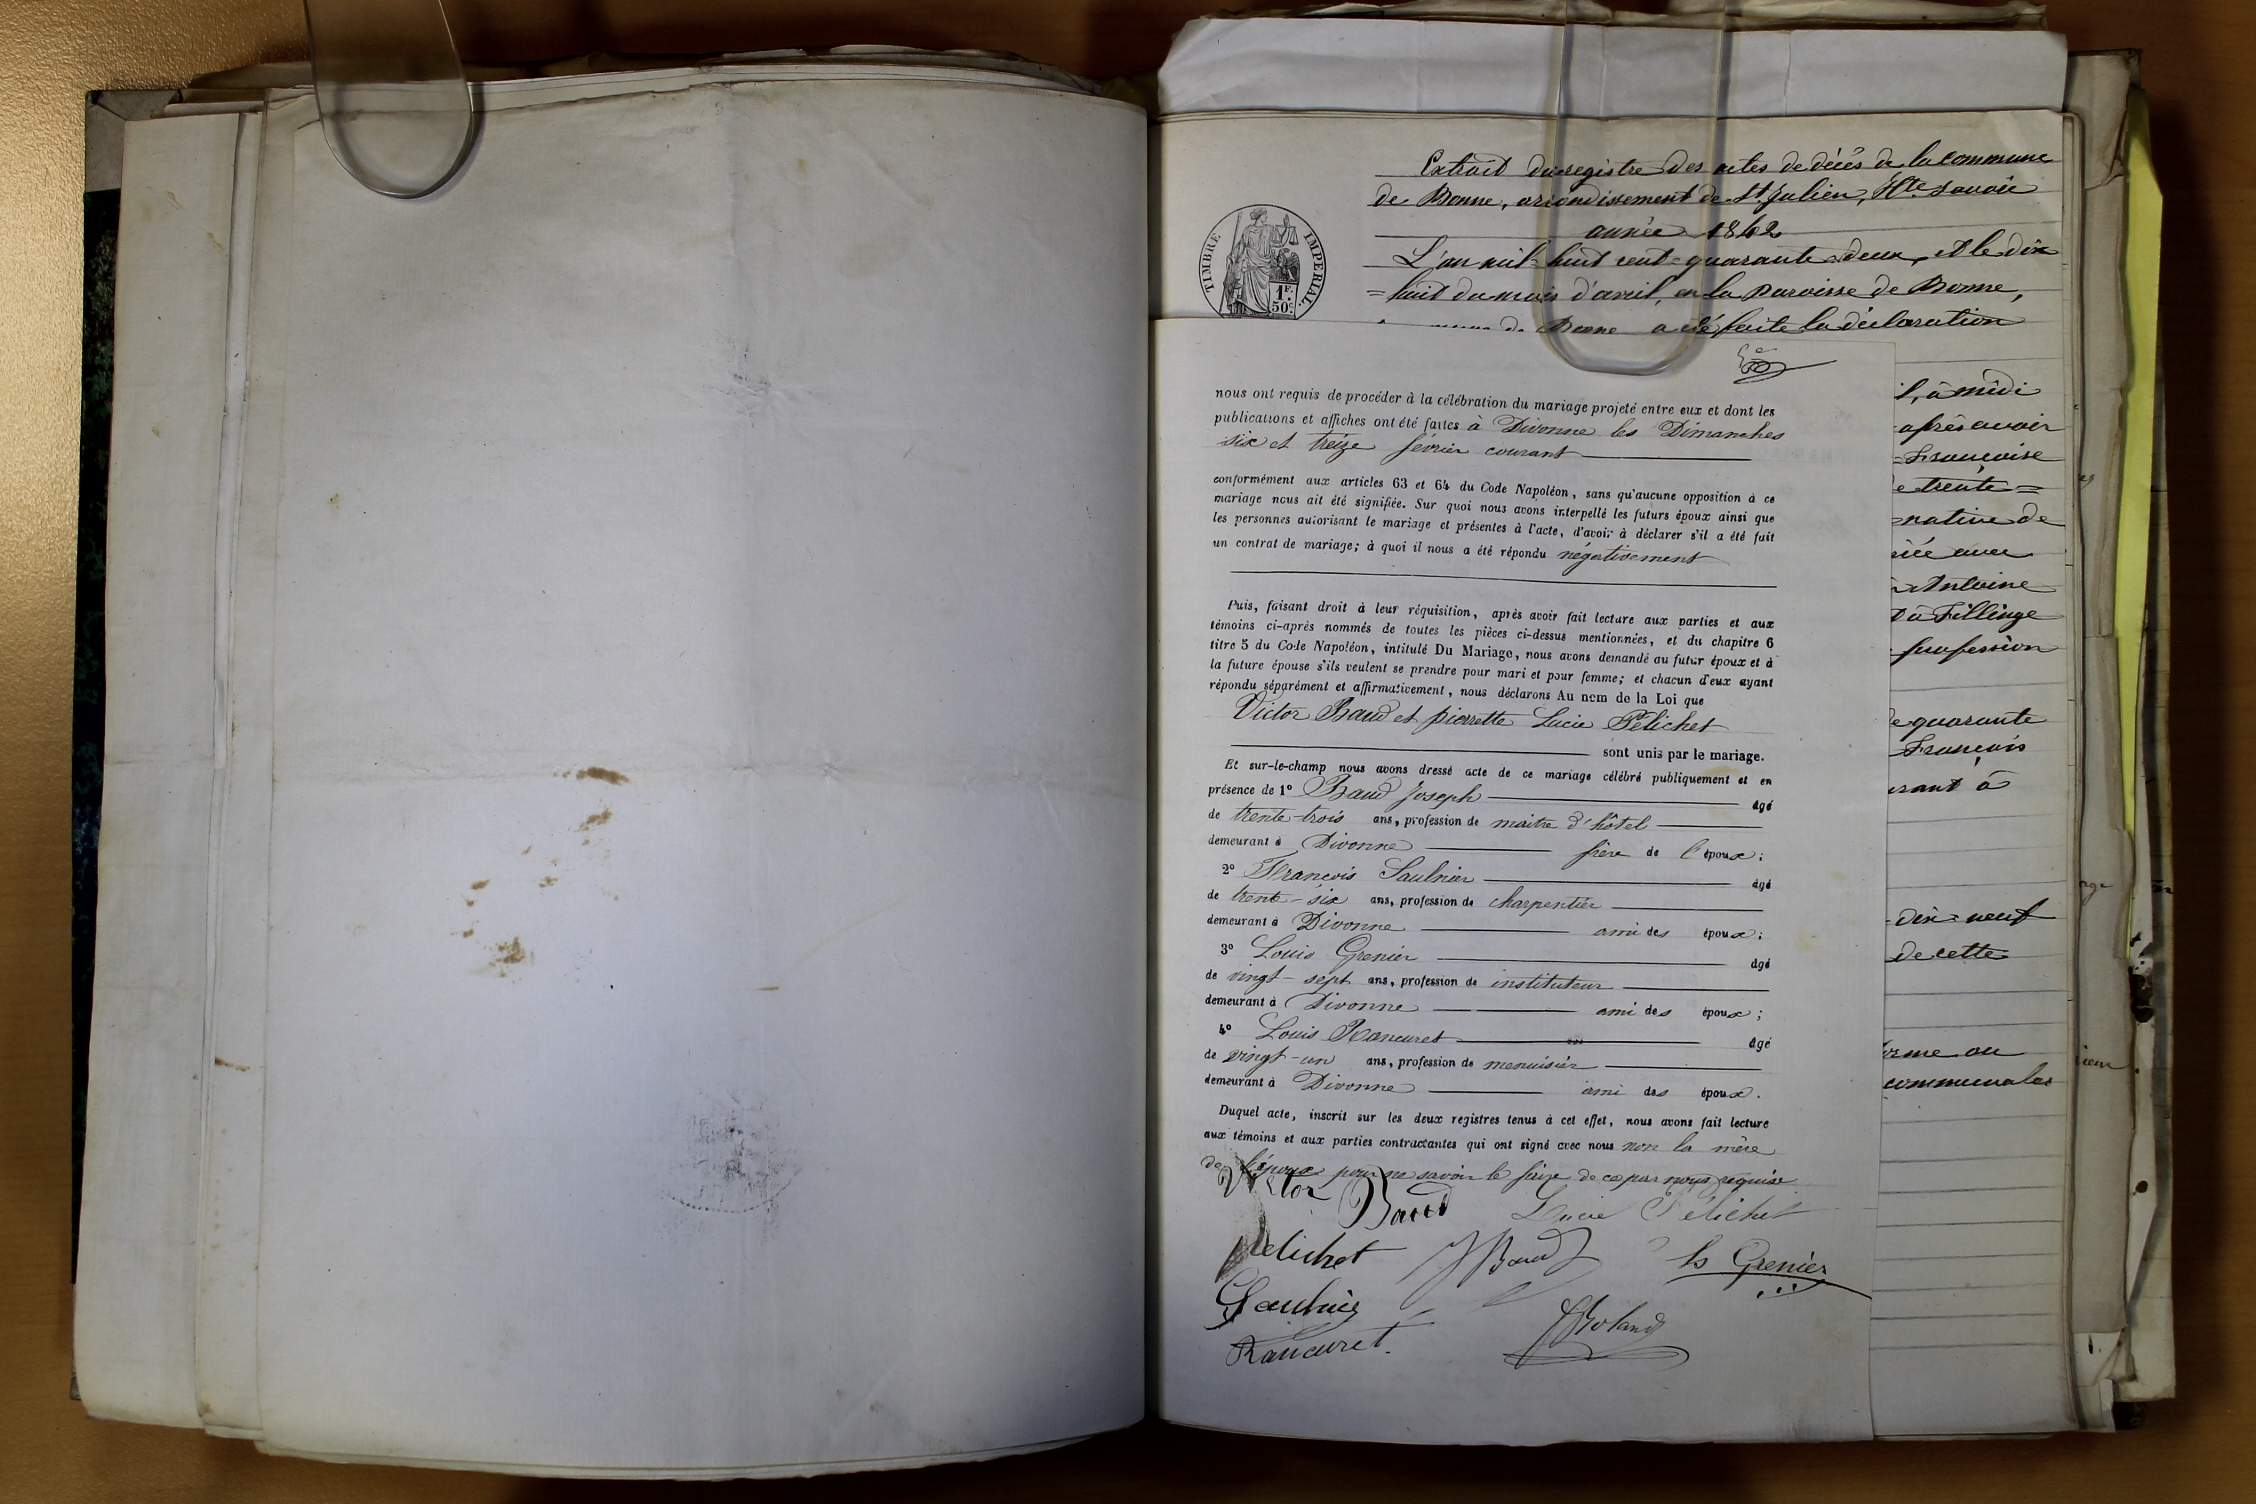 Extrait du registre des actes de décès de la commune
de Bonne, arrondissement de St Julien, Hte Savoie
année 1842
L'an mil-huit cent-quarante-deux, et le dix
=huit du mois d'avril, en la paroisse de Bonne,
de Bonne a été faite la déclaration
TIMBRE IMPERIAL.
1F.
50c.
nous ont requis de procéder à la célébration du mariage projeté entre eux et dont les
publications et affiches ont été faites à Divonne les Dimanches
six et treize février courant
conformément aux articles 63 et 64 du Code Napoléon, sans qu'aucune opposition à ce
mariage nous ait été signifiée. Sur quoi nous avons interpellé les futurs époux ainsi que
les personnes autorisant le mariage et présentes à l'acte, d'avoir à déclarer s'il a été fait
un contrat de mariage; à quoi il nous a été répondu négativement
Puis, faisant droit à leur réquisition, après avoir fait lecture aux parties et aux
témoins ci-après nommés de toutes les pièces ci-dessus mentionnées, et du chapitre 6
titre 5 du Code Napoléon, intitulé Du Mariage, nous avons demandé au futur époux et à
la future épouse s'ils veulent se prendre pour mari et pour femme; et chacun d'eux ayant
répondu séparément et affirmativement, nous déclarons Au nom de la Loi que
Victor Baud et pierrette Lucie Pélichet
sont unis par le mariage.
Et sur-le-champ nous avons dressé acte de ce mariage célébré publiquement et en
présence de 1° Baud Joseph âgé
de trente-trois ans, profession de maitre d'hôtel
demeurant à Divonne frère de l'époux;
2° François Saulnier âgé
de trente-six ans, profession de charpentier
demeurant à Divonne ami des époux;
3° Louis Grenier âgé
de vingt-sept ans, profession de instituteur
demeurant à Divonne ami des époux;
4° Louis Rancuret âgé
de vingt-un ans, profession de menuisier
demeurant à Divonne ami des époux.
Duquel acte, inscrit sur les deux registres tenus à cet effet, nous avons fait lecture
aux témoins et aux parties contractantes qui ont signé avec nous non la mère
de l'époux pour ne savoir le faire de ce par nous requise
Victor Baud Lucie Pélichet
Pelichet J Baud Ls Grenier
Saulnier
Rancuret. Roland
, à midi
après avoir
Françoise
e trente=
=native de
iée avec
Antoine
à Fillinge
profession
e quarante
François
urant à
dix=neuf
de cette
orme au
communales